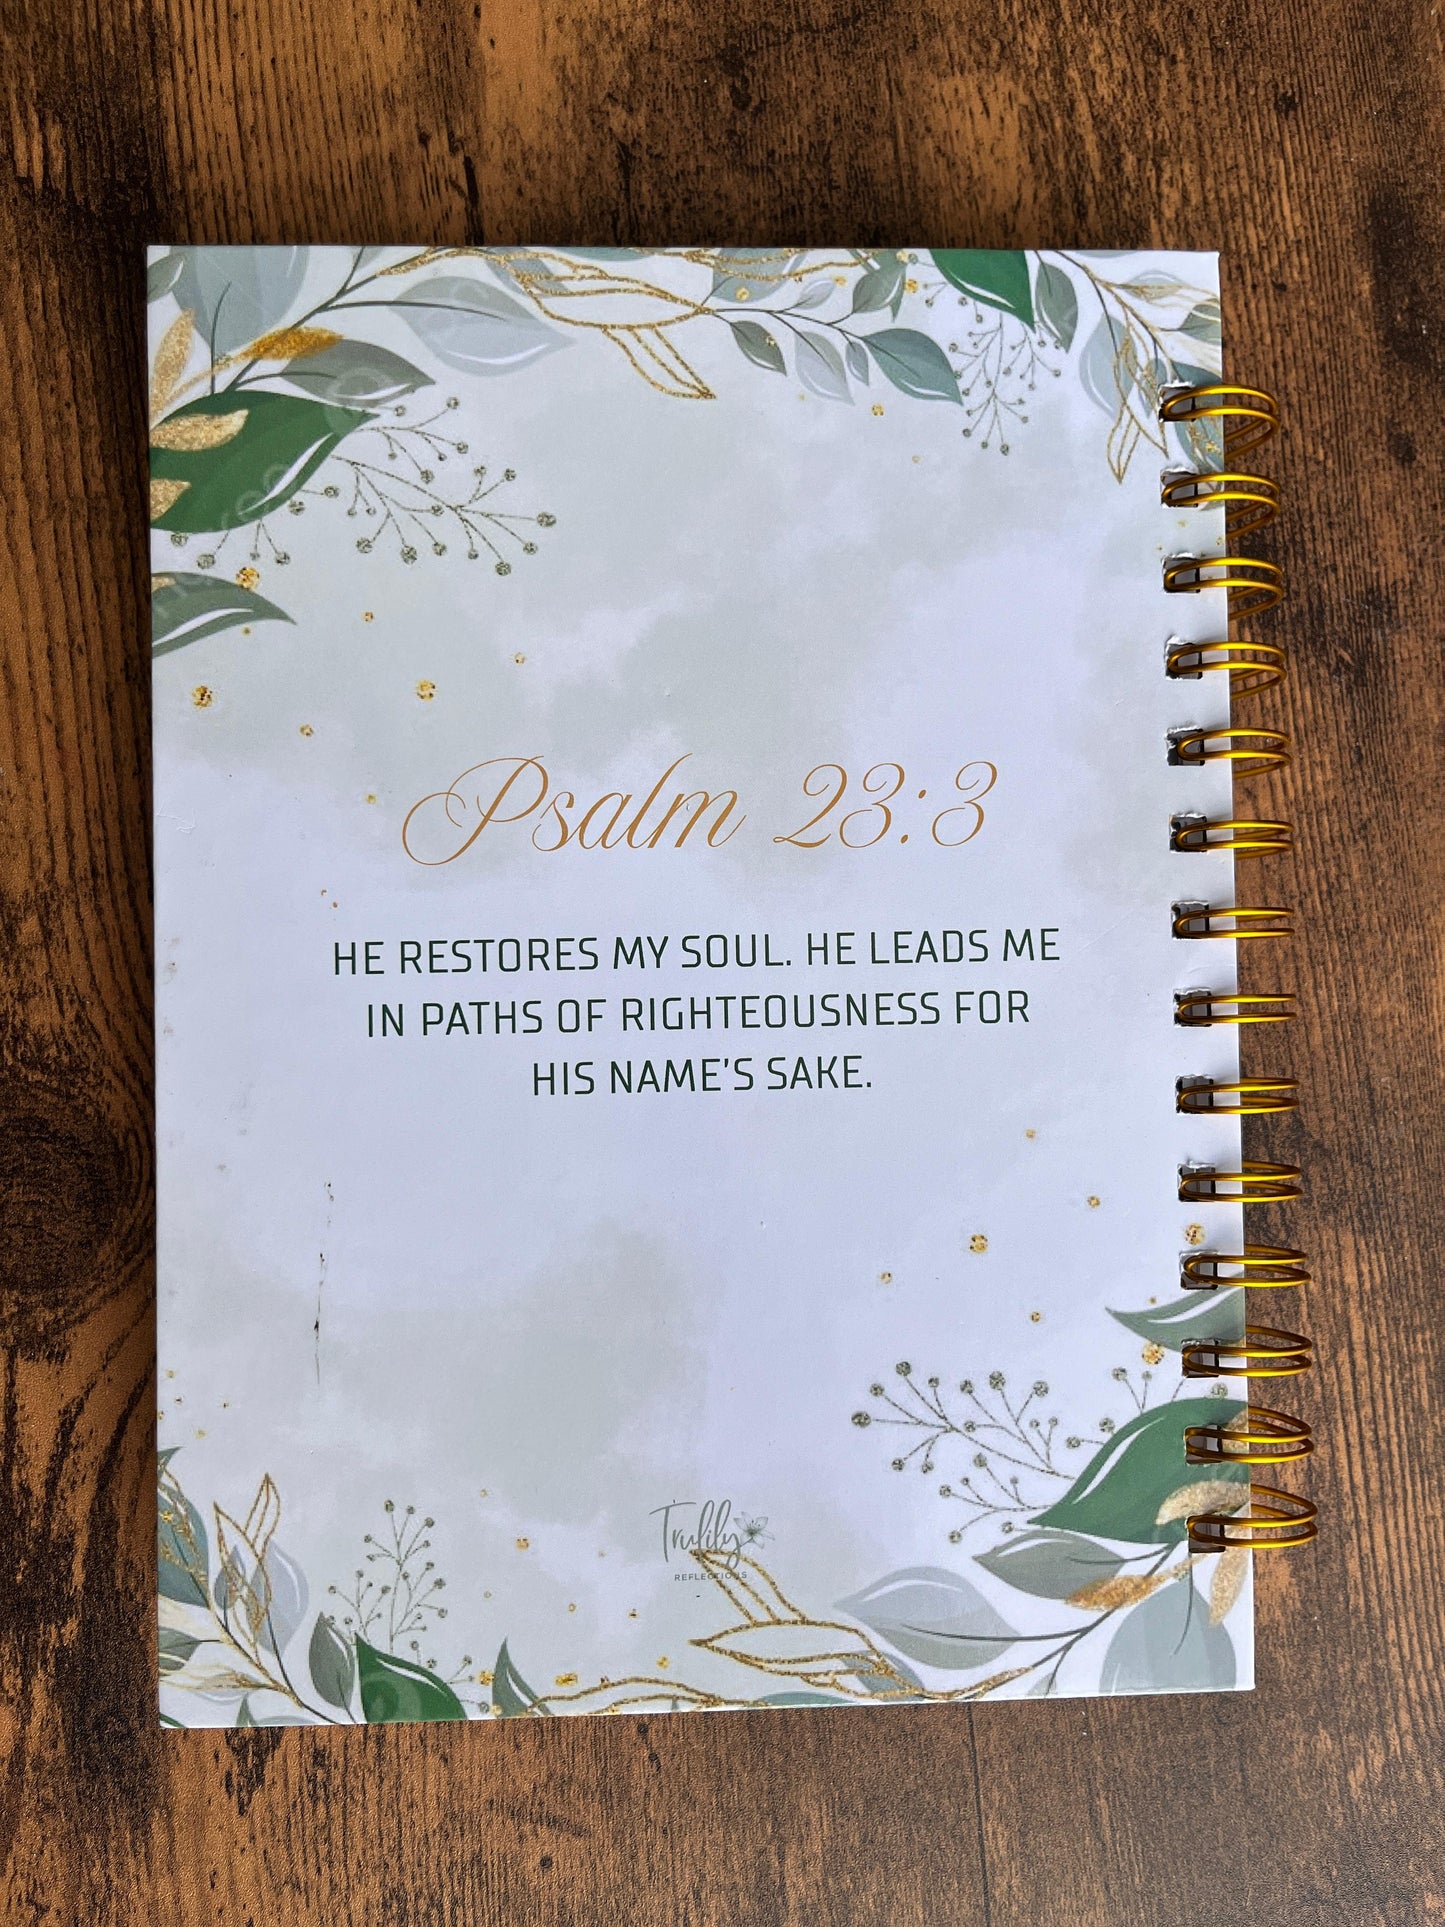 Psalm 23:3
HE RESTORES MY SOUL. HE LEADS ME
IN PATHS OF RIGHTEOUSNESS FOR
HIS NAME'S SAKE.
Trulily
REFLECTIONS